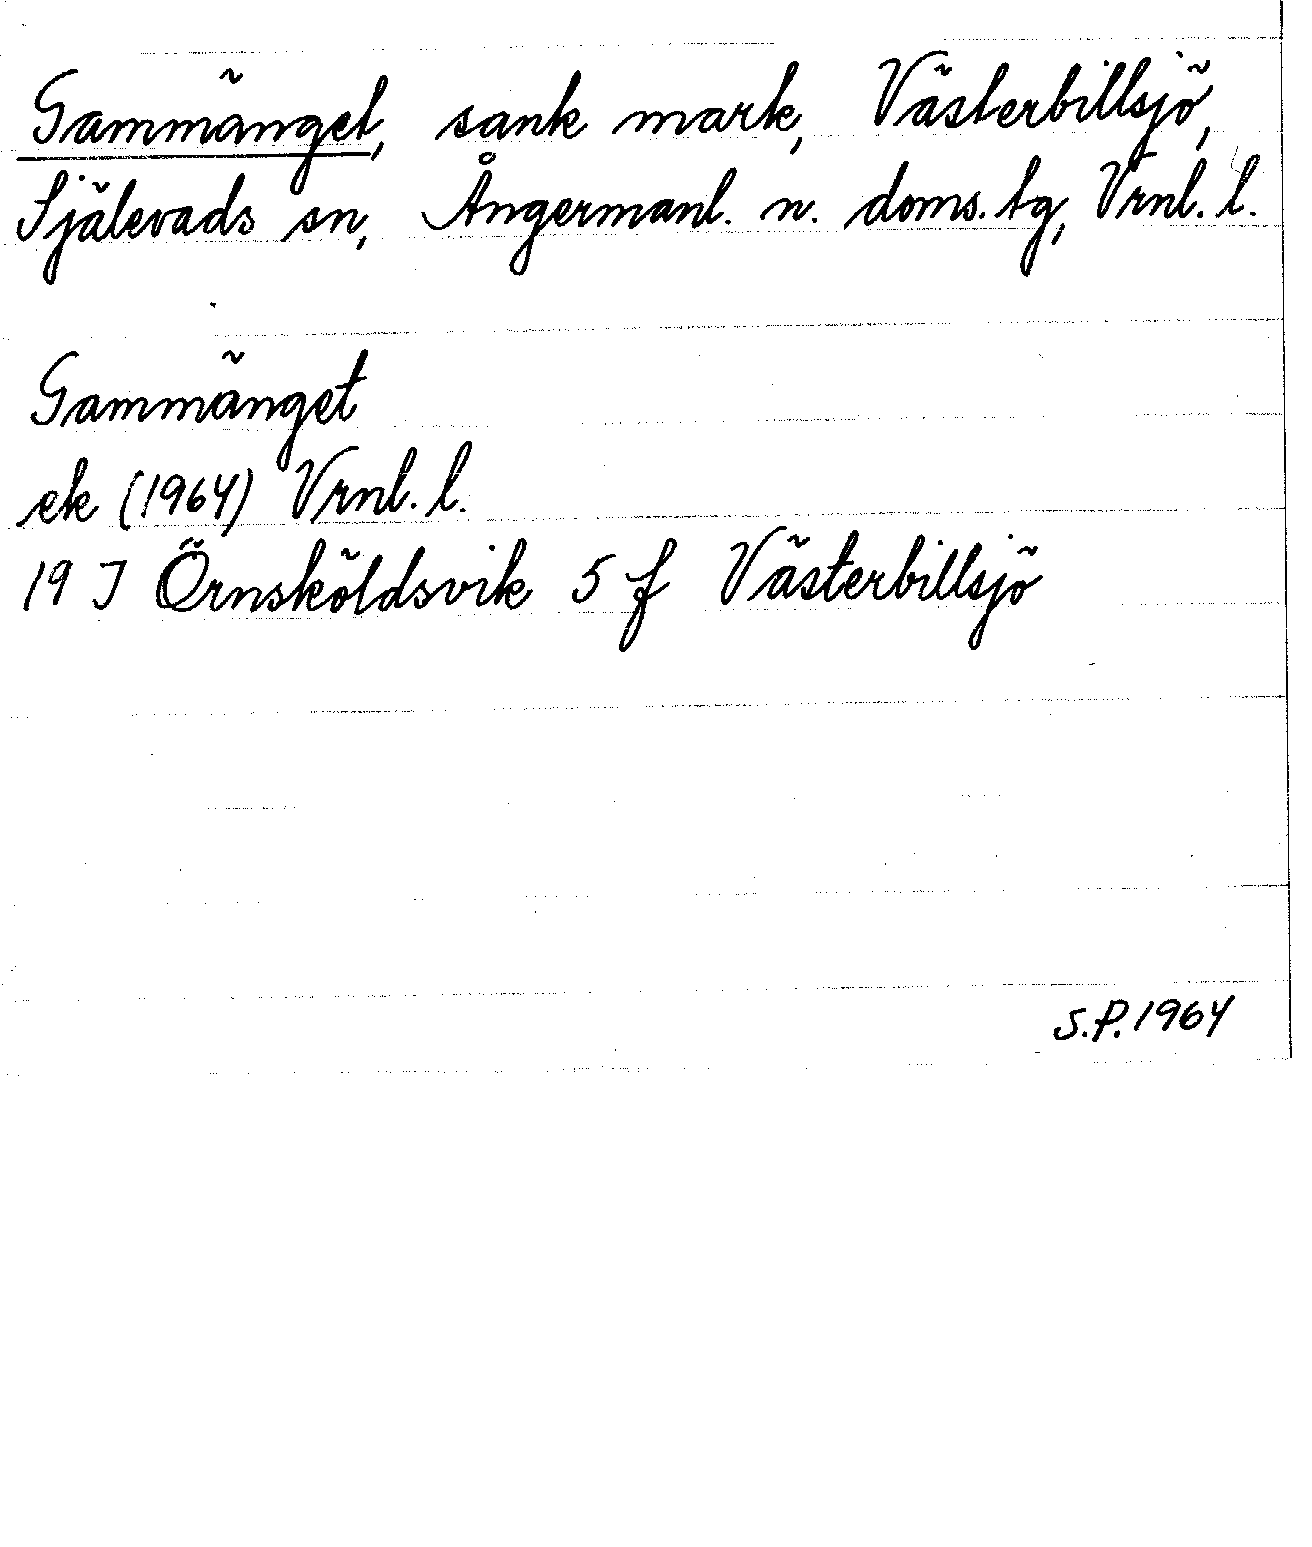 Gammänget, sank mark, Västerbillsjö,
Själevads sn, Ångermanl. n. doms. tg, Vrnl. l.
Gammänget
ek (1964) Vrnl. l.
19 J Örnsköldsvik 5 f Västerbillsjö
S.P. 1964